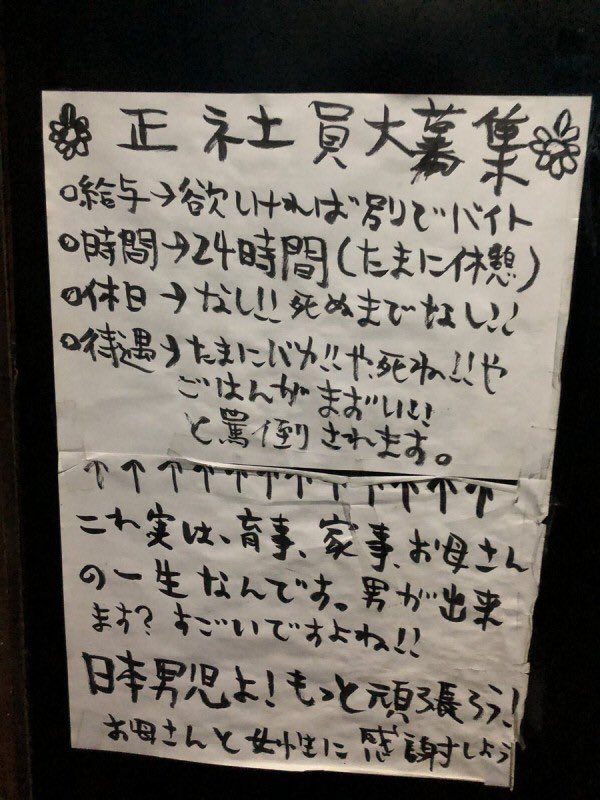 正社員大募集
○給与→欲しければ別でバイト
○時間→24時間(たまに休憩)
○休日→なし!!死ぬまでなし!!
○待遇→たまにバカ!!や死ね!!や
ごはんがまずい!!
と罵倒されます。
↑↑↑↑↑↑↑↑↑↑↑↑
これ実は、育事、家事、お母さん
の一生なんです。男が出来
ます?すごいですよね!!
日本男児よ!もっと頑張ろう!
お母さんと女性に感謝しよう